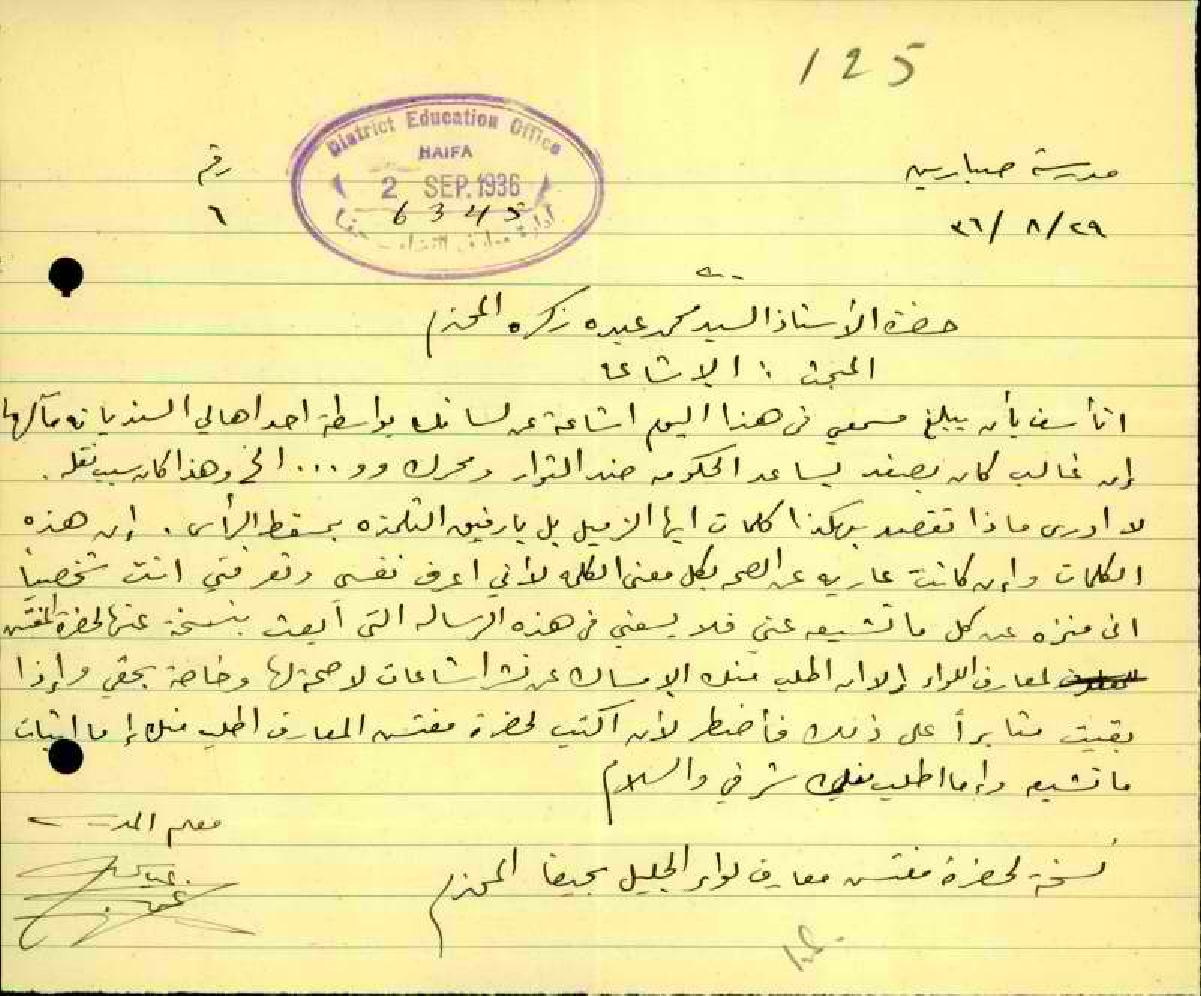 125
District Education Office
HAIFA
2 SEP. 1936
6345
إدارة معارف اللواء حيفا
رقم
٦
مدرسة صبارين
٢٩/ ٨/ ٣٦
حضرة الأستاذ السيد محمد عبده زكره المحترم
المبحث : الاشاعة
اتأسف بأن يبلغ مسمعي في هذا اليوم اشاعة عن لسانك بواسطة احد اهالي السنديانه مآلها
إن غالب كان بصفد يساعد الحكومه ضد الثوار ومحرك وو ... الخ وهذا كان سبب نقله .
لا ادري ماذا تقصد بهكذا كلمات ايها الزميل بل يا رفيق التلمذه بمسقط الرأس . إن هذه
الكلمات وإن كانت عاريه عن الصحه بكل معنى الكلمه لأني اعرف نفسي وتعرفني انت شخصياً
اني منزه عن كل ما تشيعه عني فلا يسعني في هذه الرساله التي ابعث بنسخة عنها لحضرة المفتش
لمعارف اللواء إلا ان اطلب منك الامساك عن نشر اشاعات لا صحة لها وخاصة بحقي وإذا
بقيت مثابراً على ذلك فأضطر لأن اكتب لحضرة مفتش المعارف اطلب منك إما اثبات
ما تشيعه وإما اطلب شرفي والسلام
معلم المدرسة
نسخة لحضرة مفتش معارف لواء الجليل بحيفا المحترم